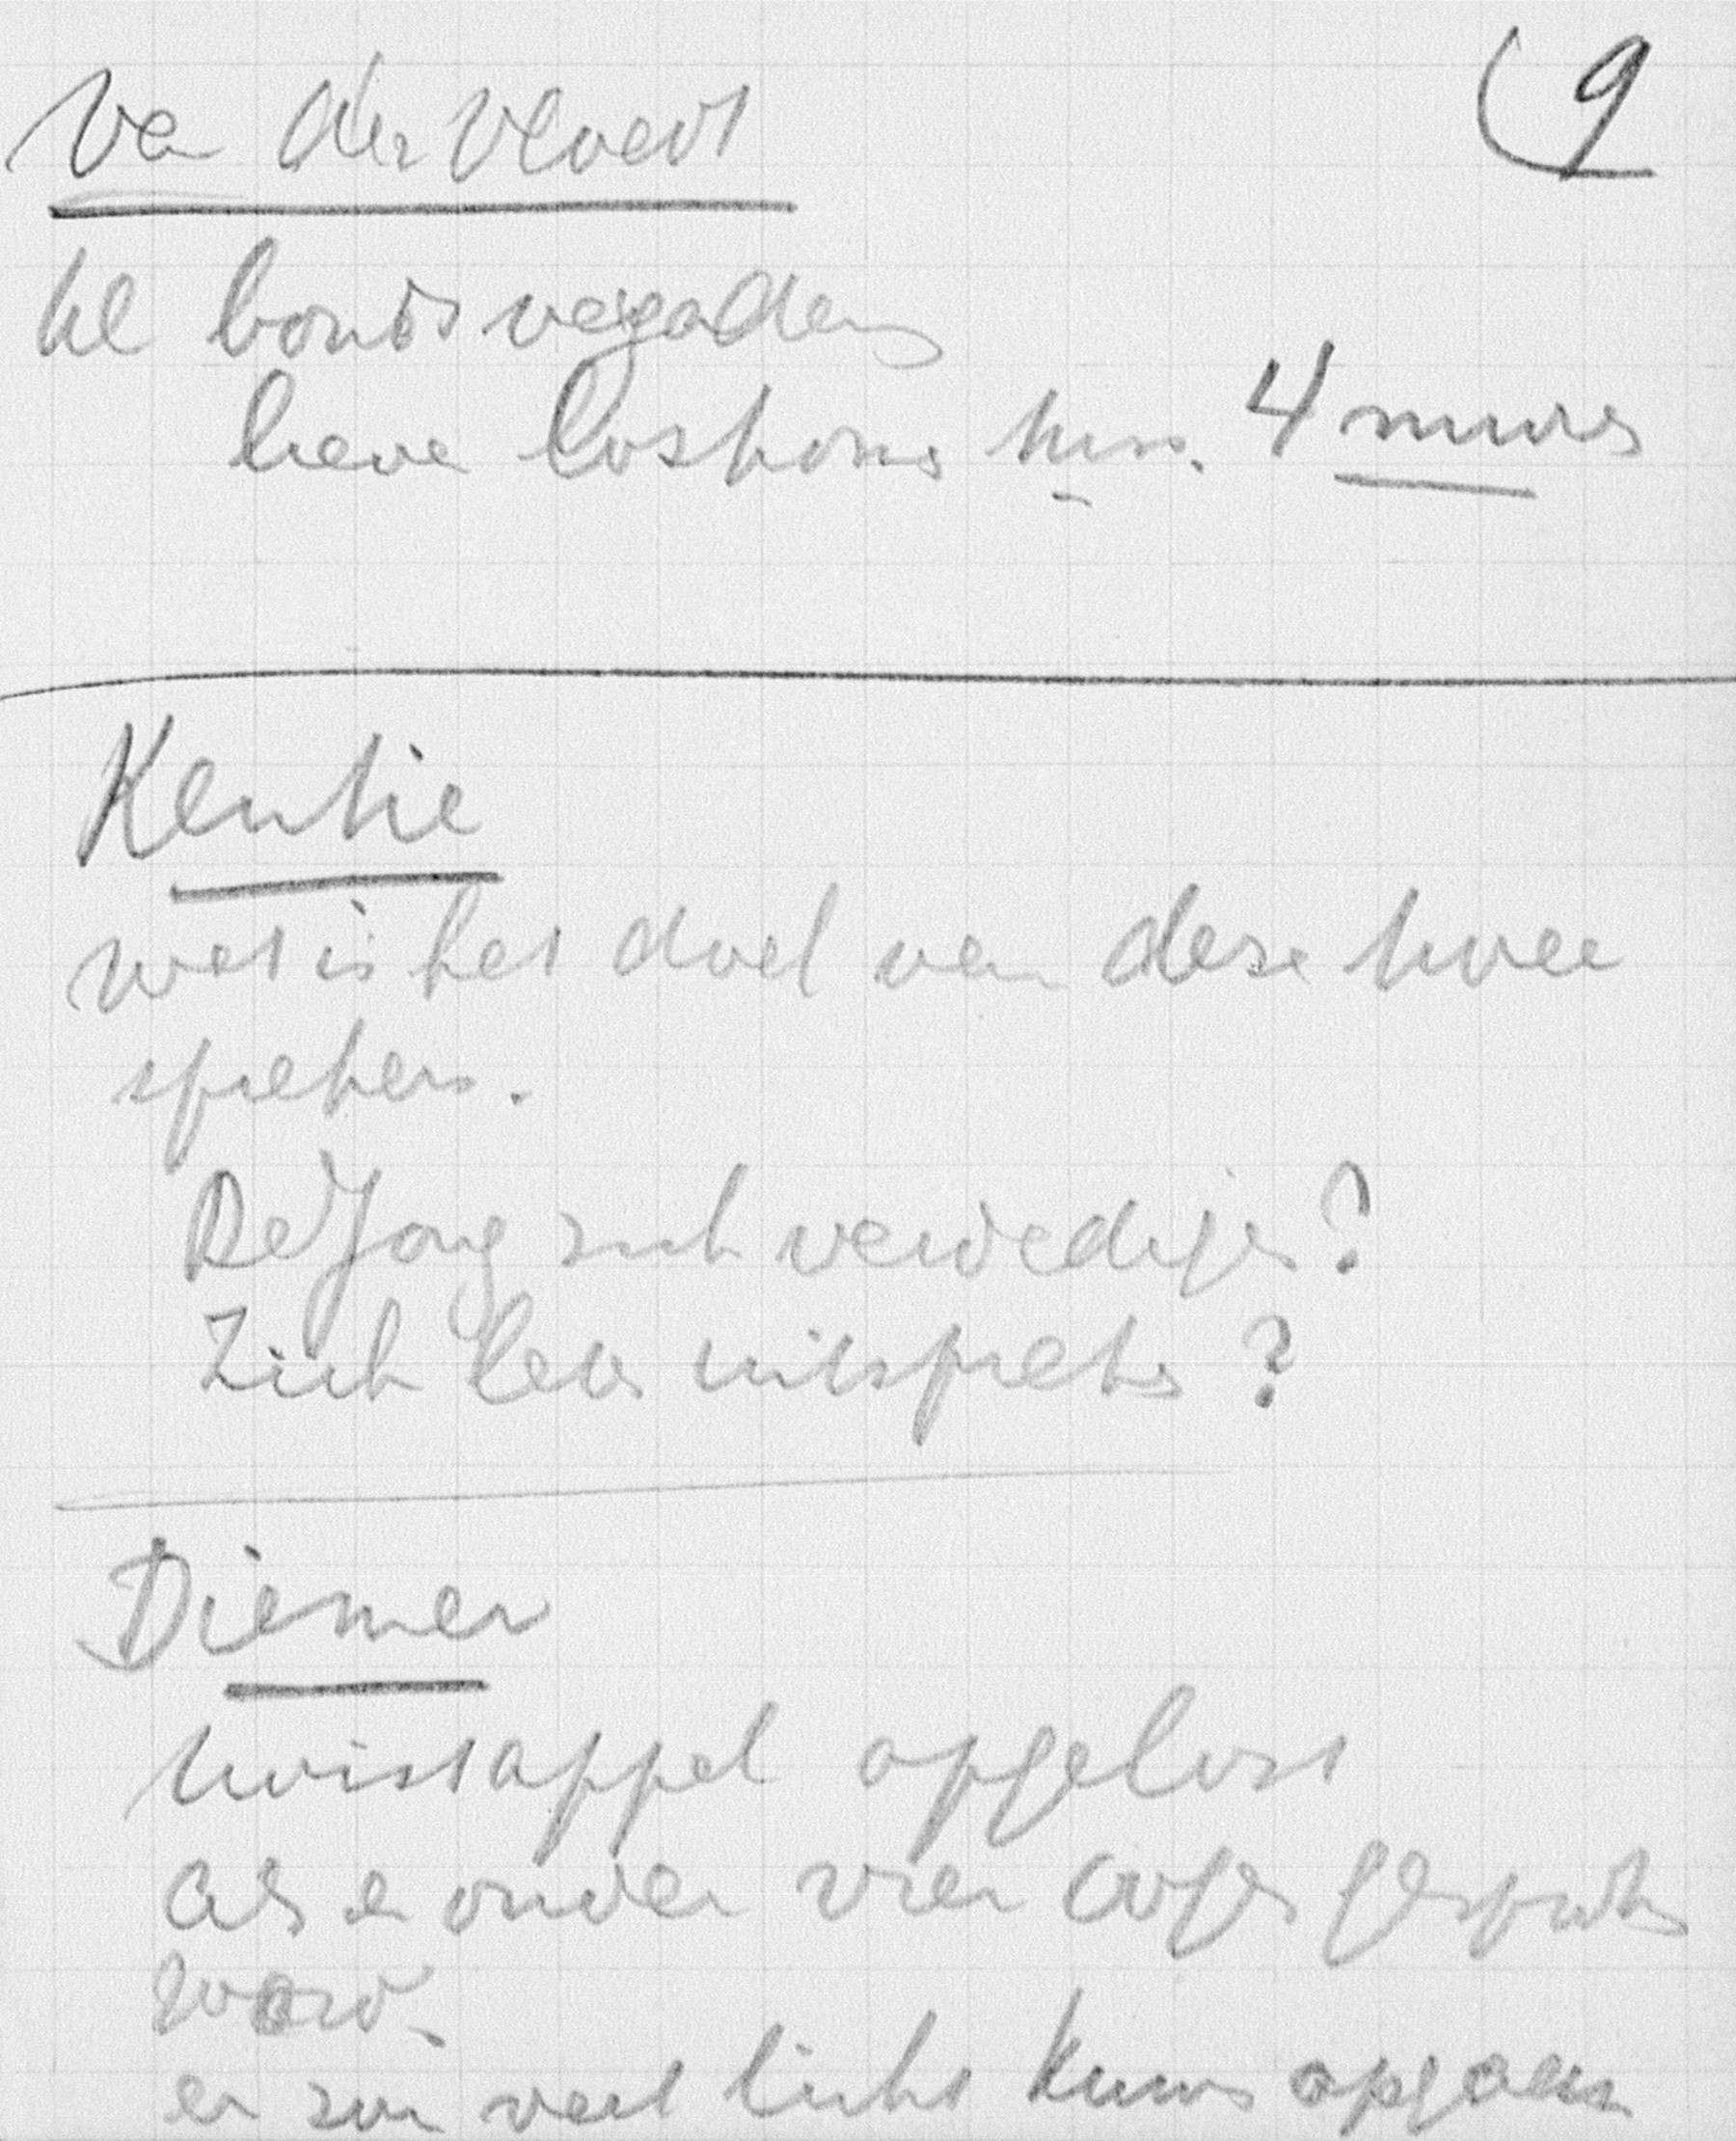 9
Van der Vlugt
Kl bondsvergadering
liever loskomen tussen 4 muren
Kentie
wat is het doel van deze twee
sprekers.
De Jong zich verdedigen?
Zich laten uitspreken?
Diemer
twistappel opgelost
als er onder vier oogen gesproken
word.
er zou veel licht kunnen opgaan